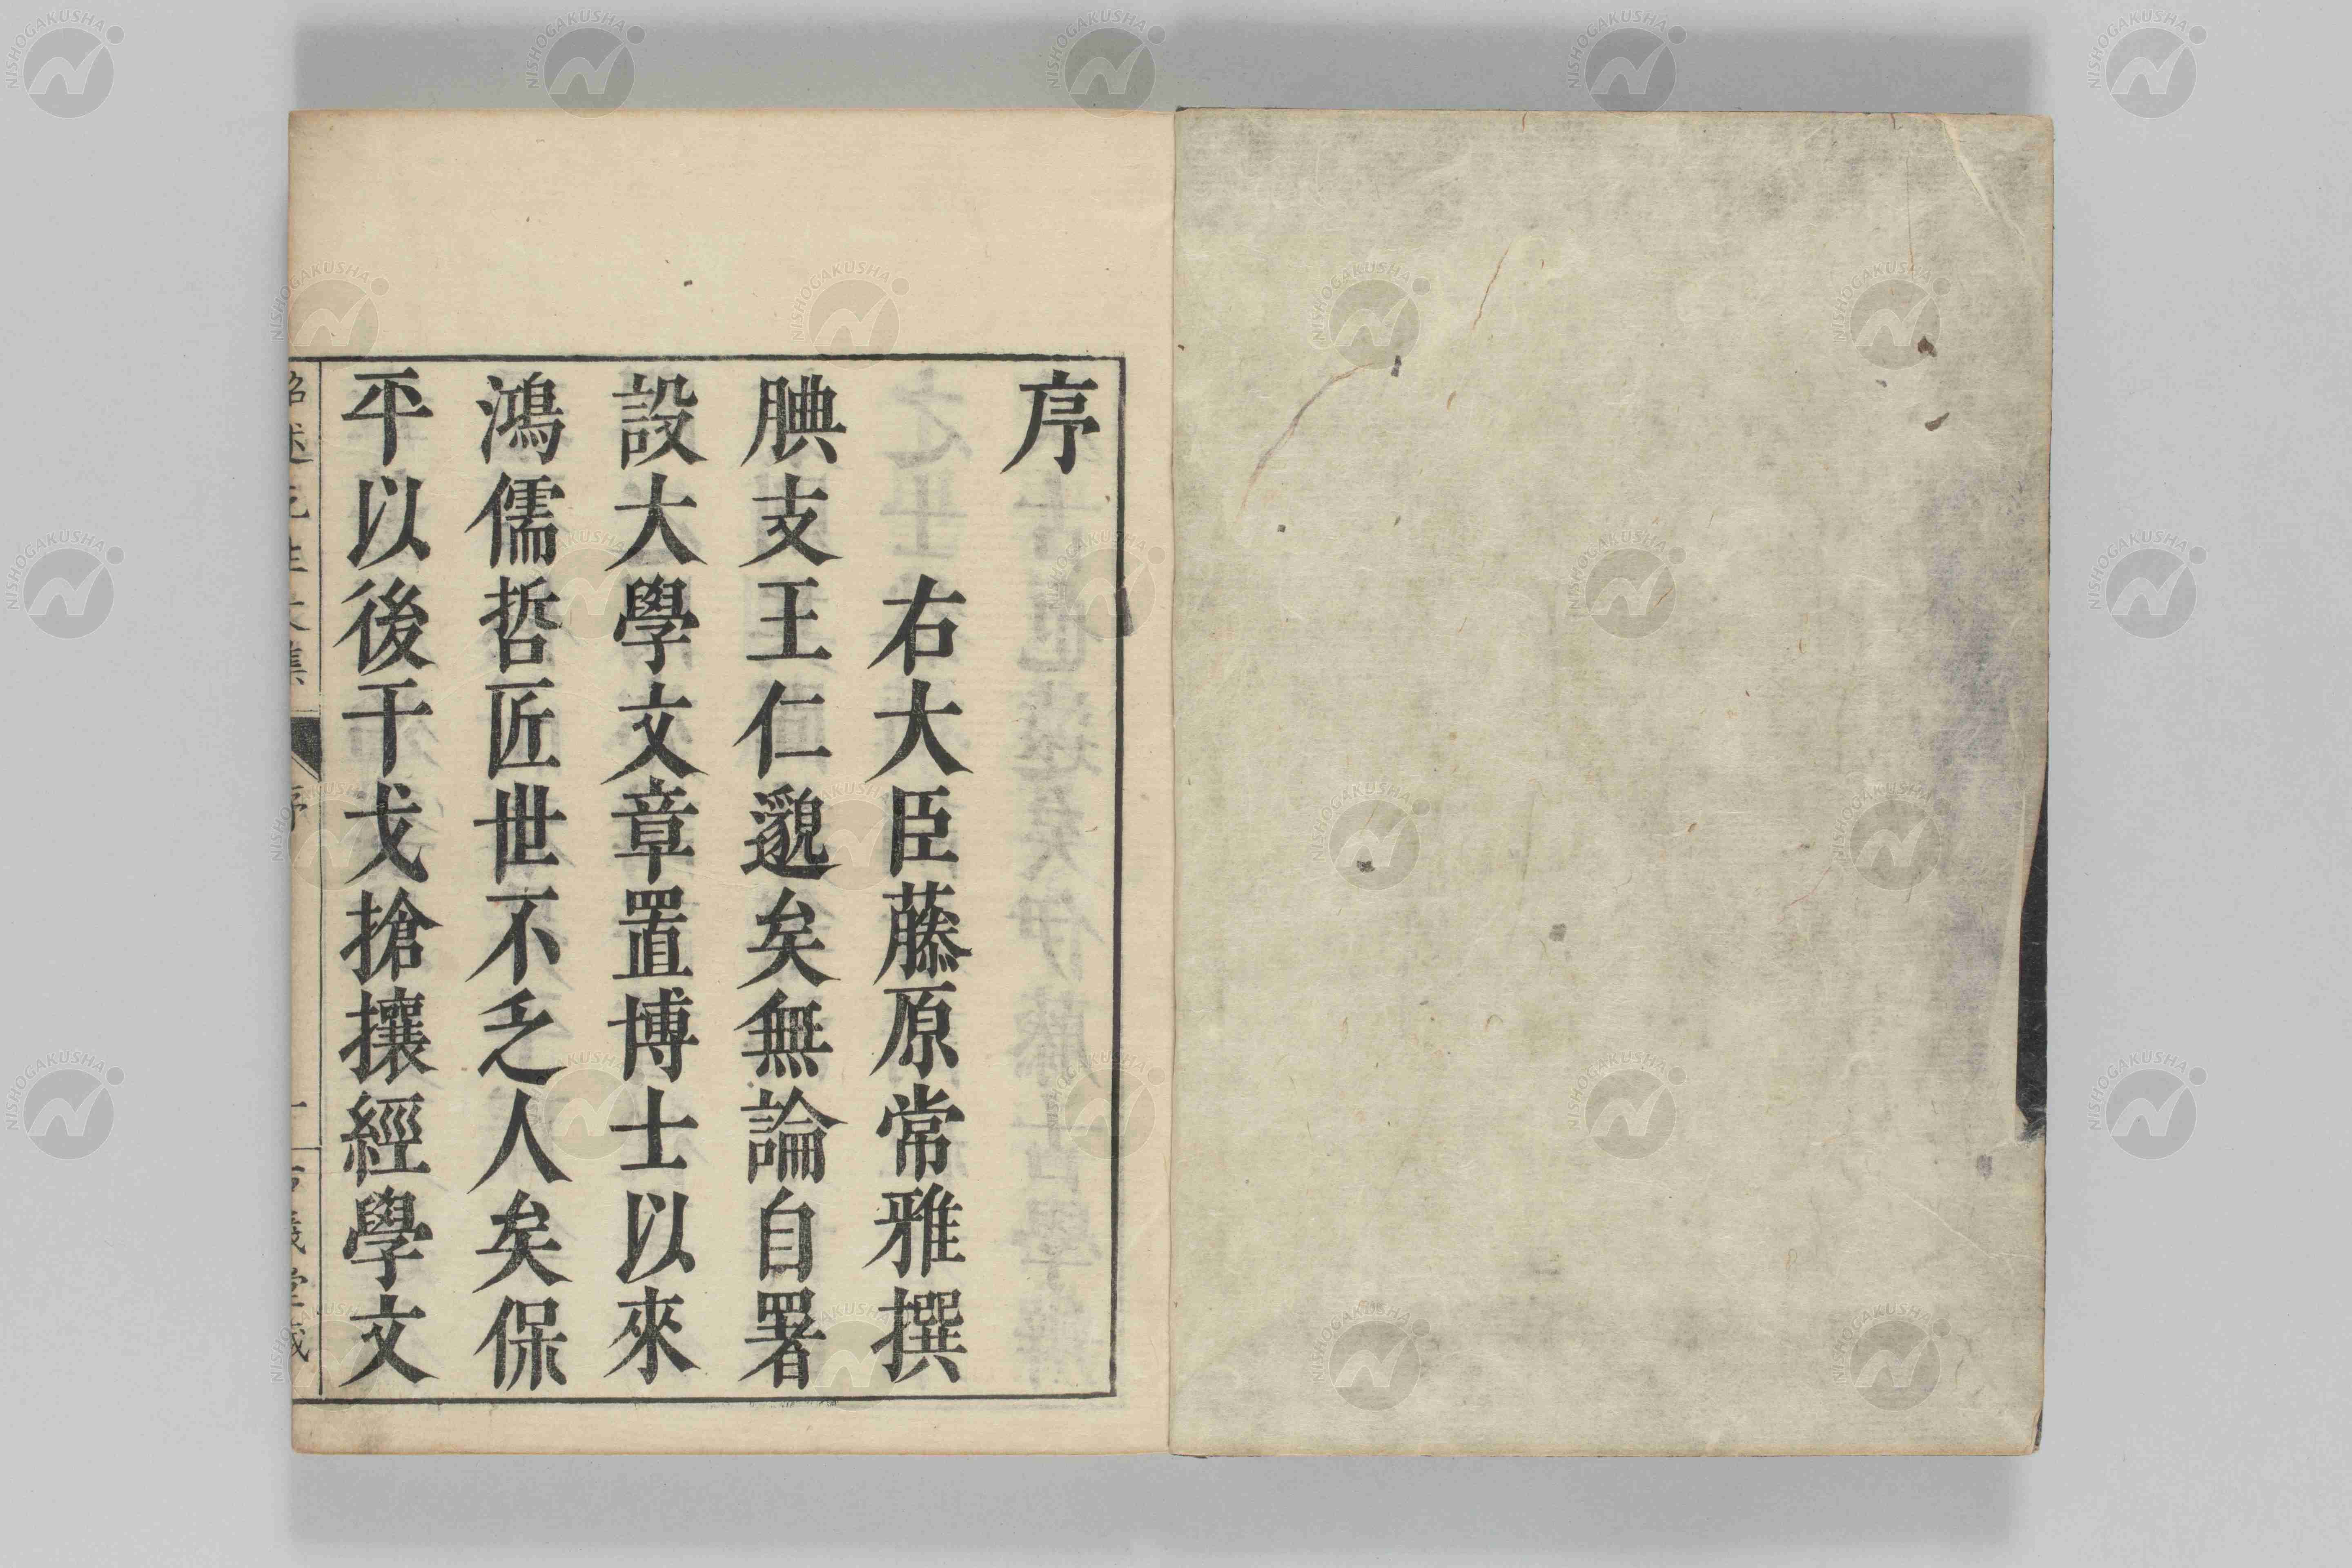 序
右大臣藤原常雅撰
腆支王仁邈矣無論自署
設大學文章置博士以來
鴻儒哲匠世不乏人矣保
平以後干戈搶攘經學文
NISHOGAKUSHA